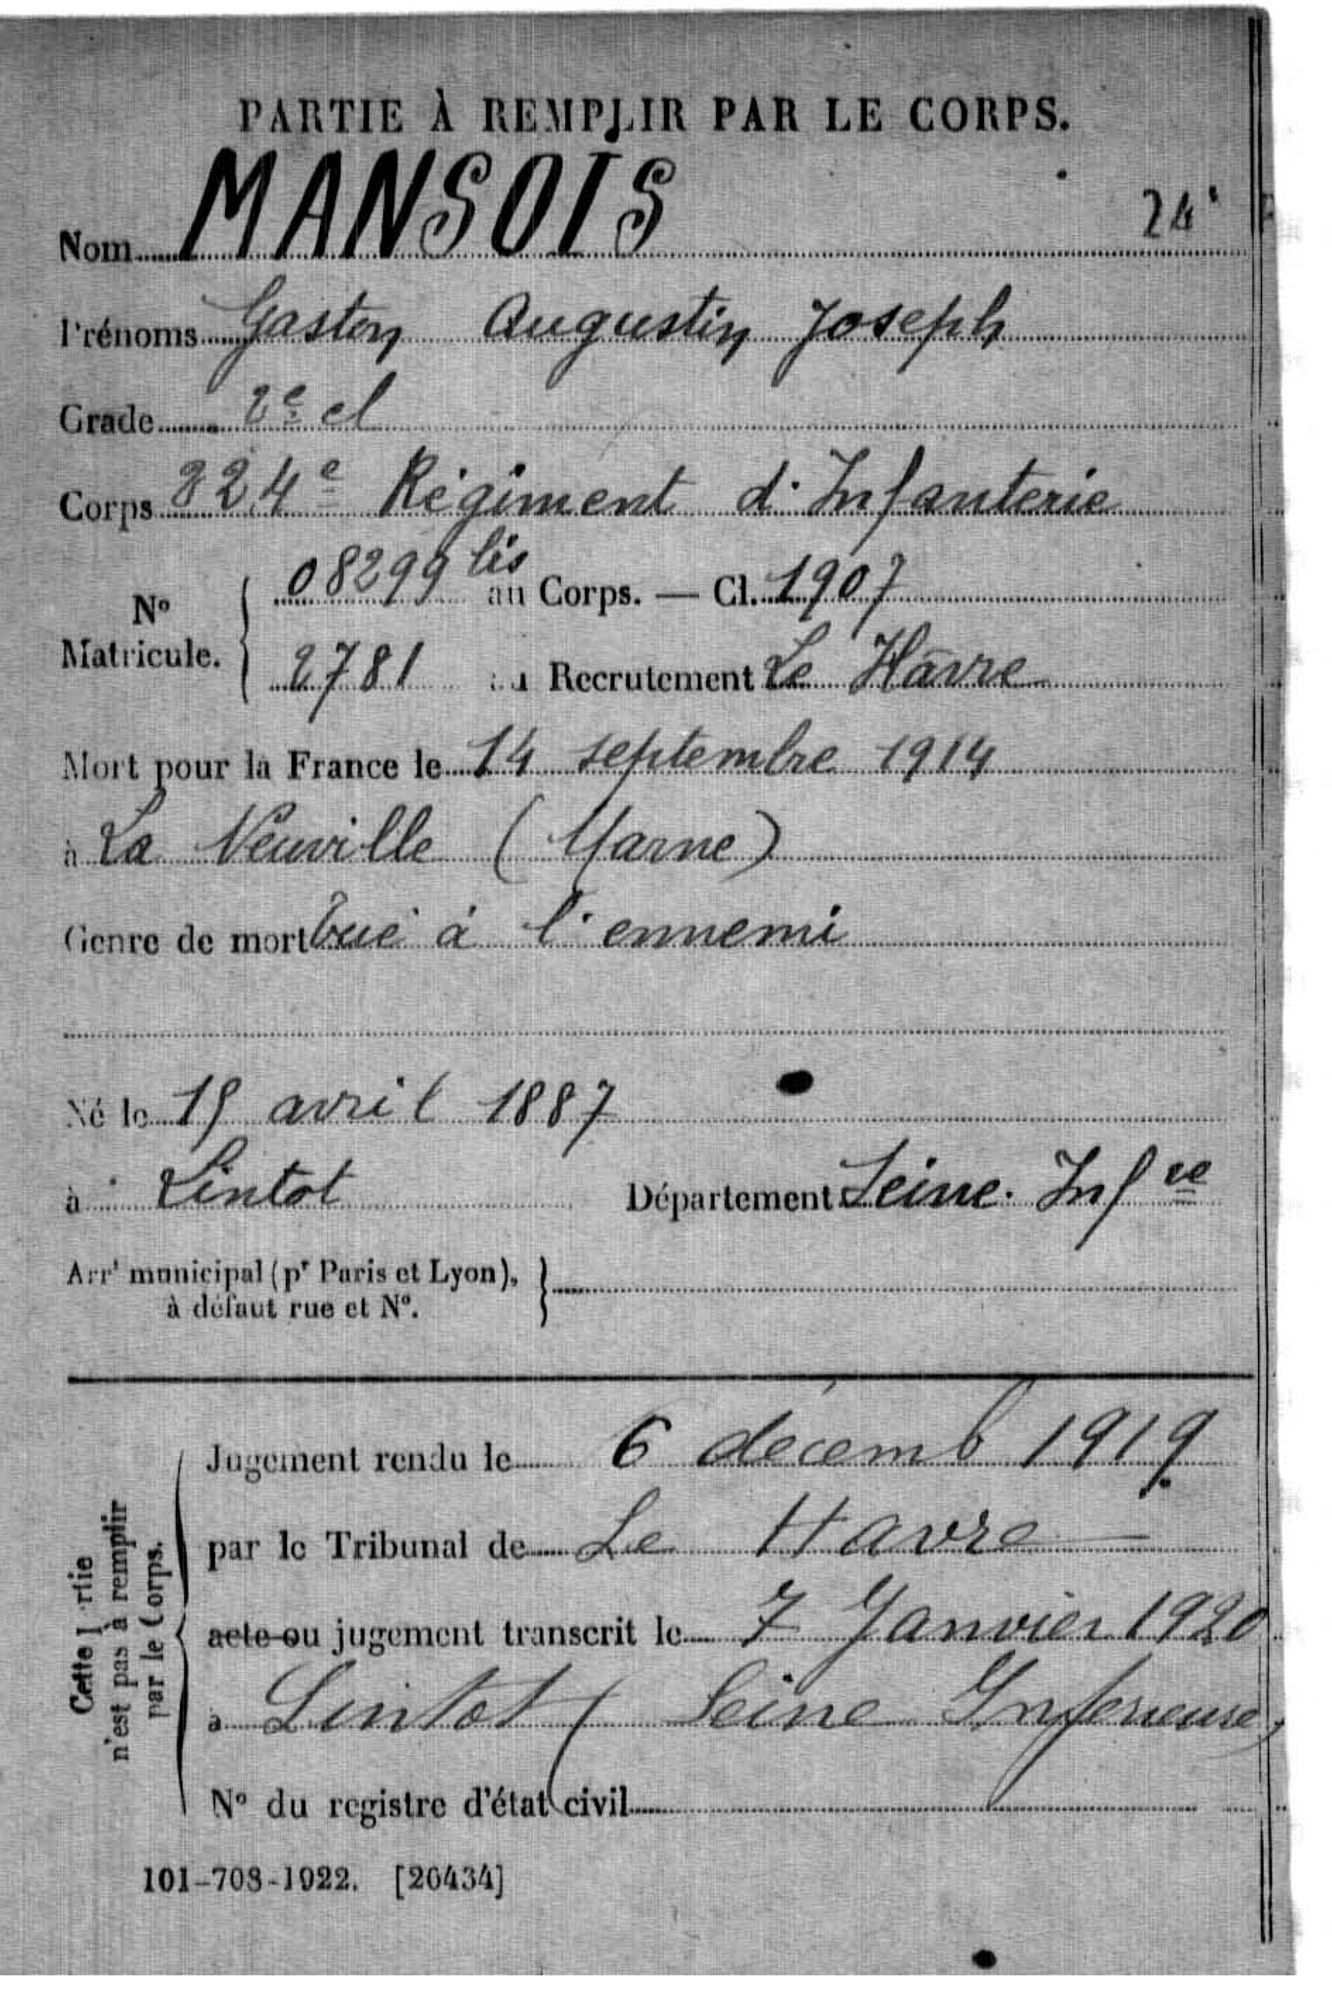 PARTIE À REMPLIR PAR LE CORPS.
24e
Nom MANSOIS
Prénoms Gaston Augustin Joseph
Grade 2e cl
Corps 224e Régiment d'Infanterie
No Matricule. { 08299 bis au Corps. — Cl. 1907
2781 au Recrutement Le Hâvre
Mort pour la France le 14 septembre 1914
à La Neuville (Marne)
Genre de mort Tué à l'ennemi
Né le avril 1887
à Lintot Département Seine. Infre
Arrt municipal (pr Paris et Lyon), à défaut rue et No. }
Cette Partie n'est pas à remplir par le Corps.
Jugement rendu le 6 décemb 1919
par le Tribunal de Le Havre
acte ou jugement transcrit le 7 Janvier 1920
à Lintot (Seine Inférieure)
No du registre d'état civil
101-708-1922. [26434]